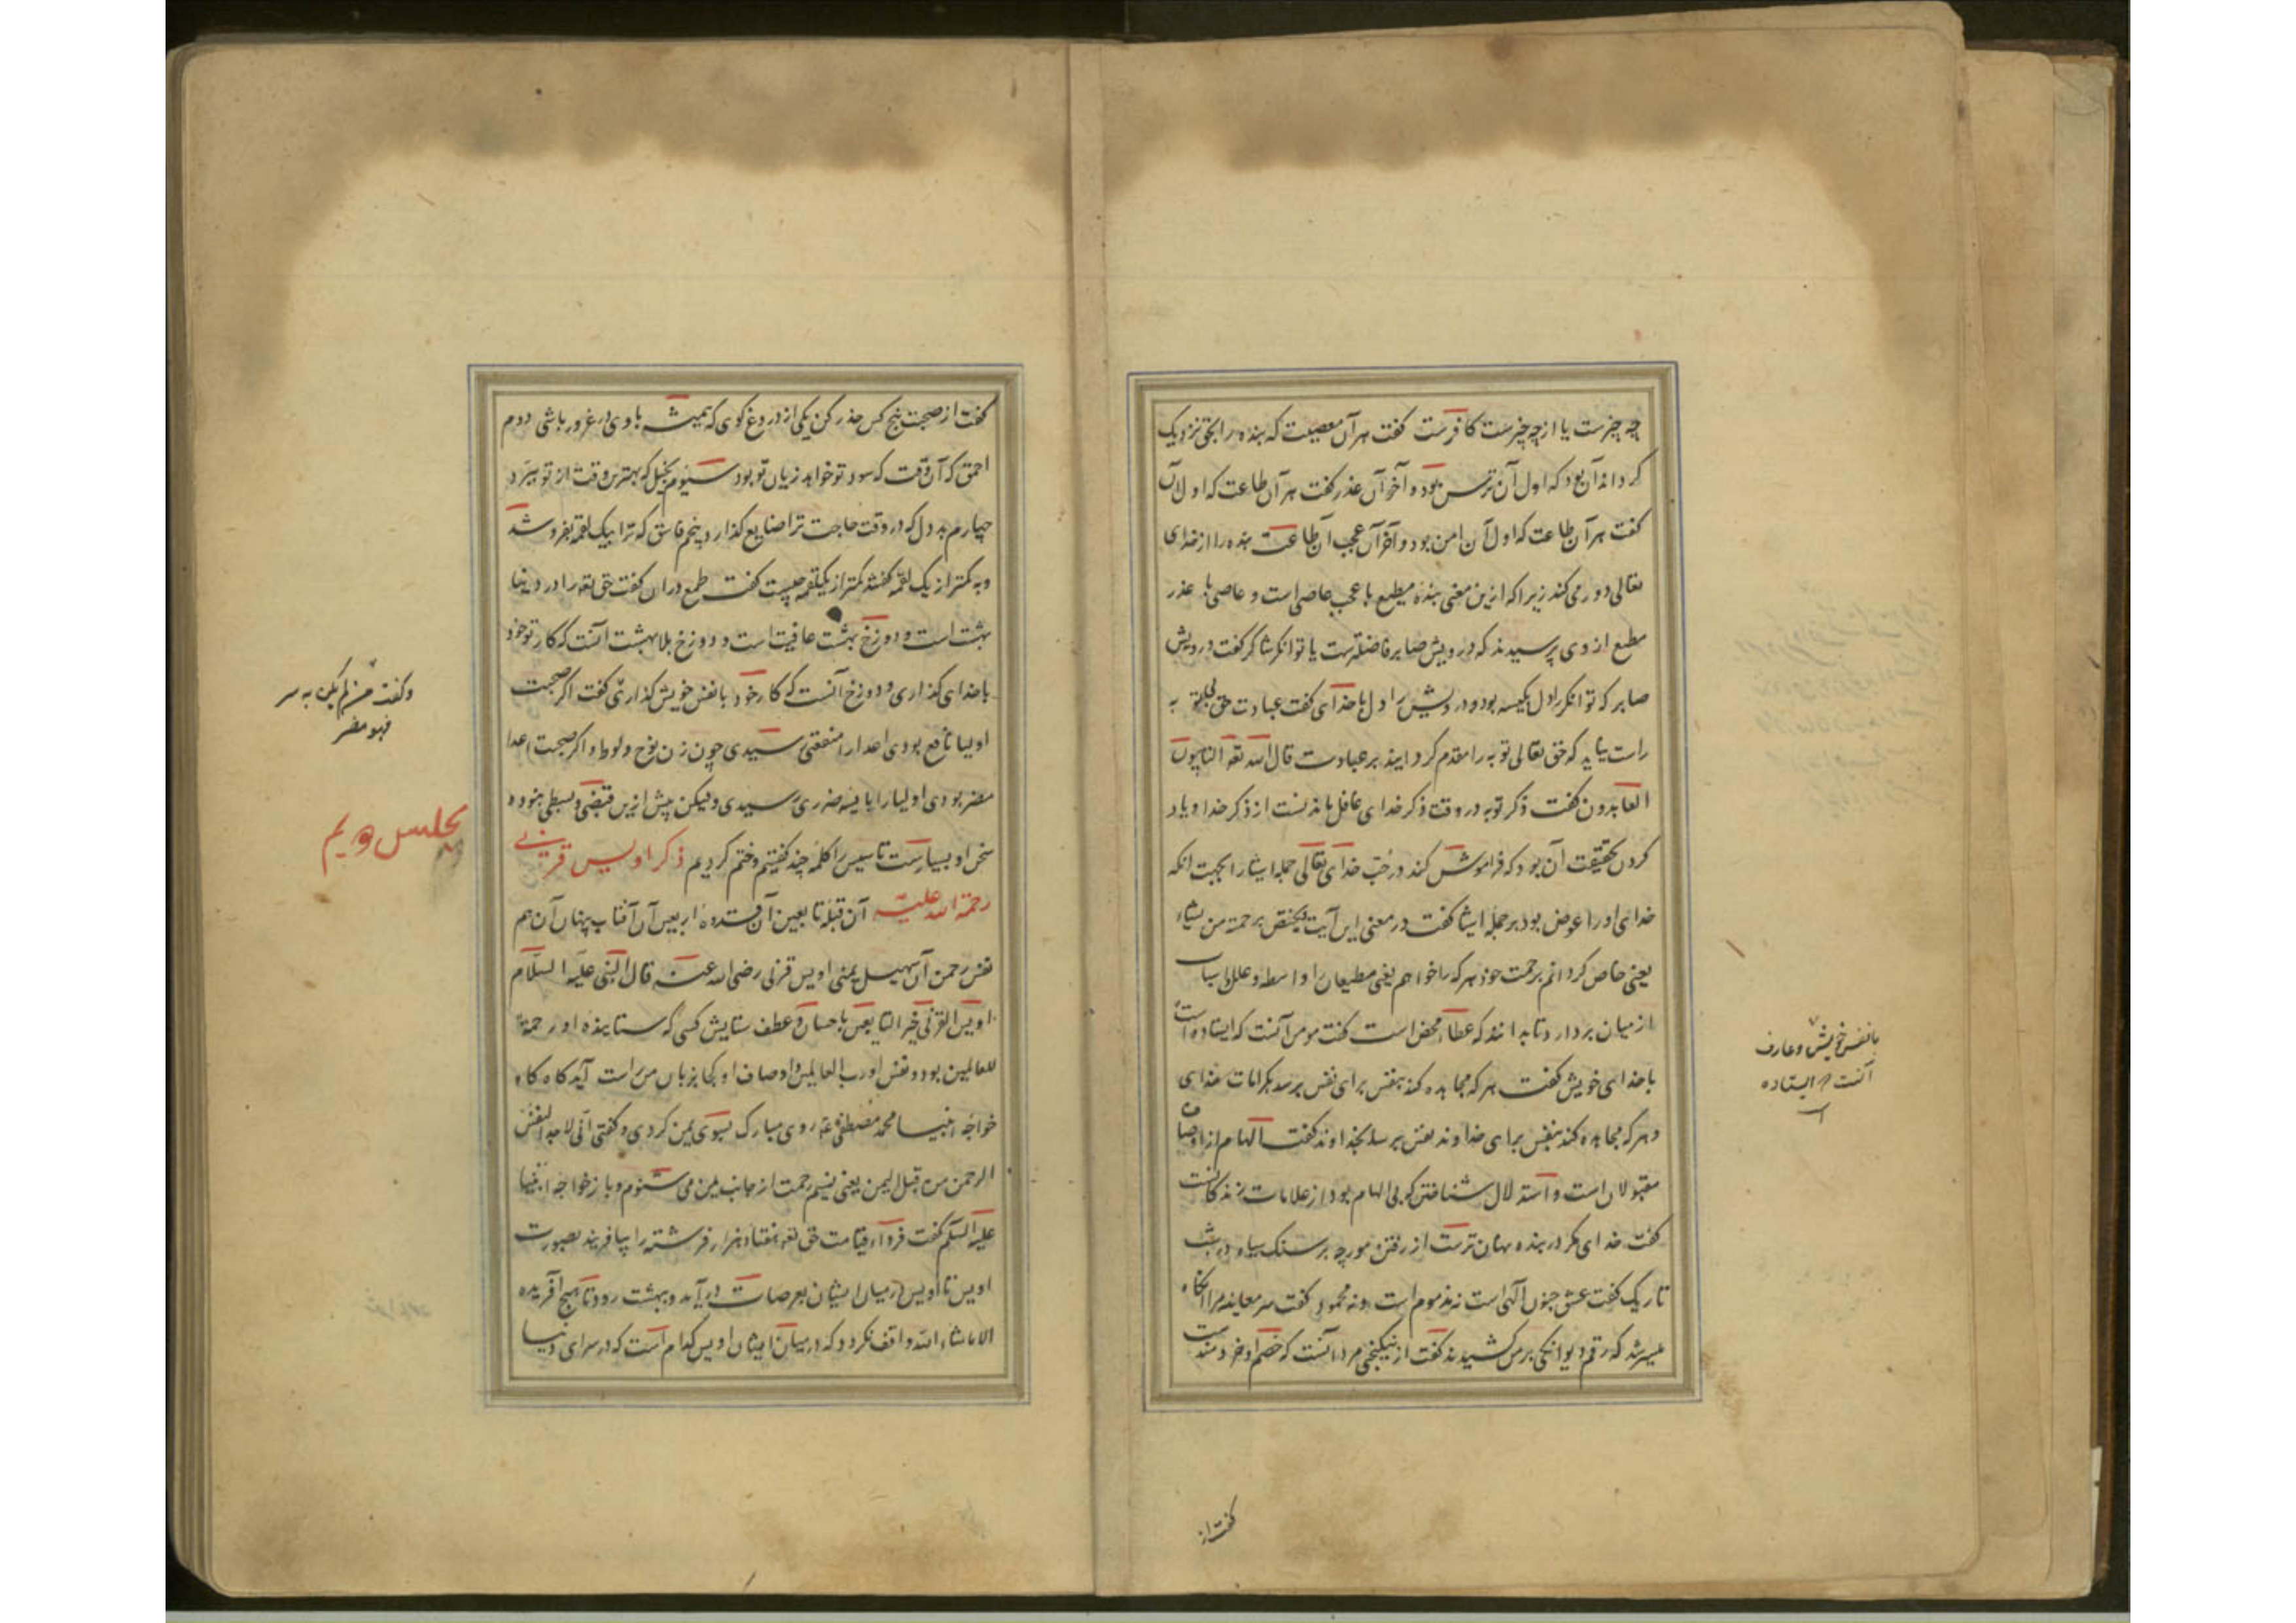 چه چیزست یا از چه چیزست کافرست گفت هر آن معصیت که بنده را بحق نزدیک
گرداند آن بود که اول آن ترس بود و آخر آن عذر گفت هر آن طاعت که اول آن
گفت هر آن طاعت که اول آن امن بود و آخر آن عجب آن طاعت بنده را از خدای
تعالی دور می کند زیرا که ازین معنی بنده مطیع با عجب عاصی است و عاصی با عذر
مطیع از وی پرسیدند که درویش صابر فاضلترست یا توانگر شاکر گفت درویش
صابر که توانگر را دل بکیسه بود و درویش را دل با خدای گفت عبادت حق جز بتوبه
راست نیاید که حق تعالی توبه را مقدم گردانید بر عبادت قال الله تعه التائبون
العابدون گفت ذکر توبه در وقت ذکر خدای غافل ماندنست از ذکر خدا و یاد
کردن بحقیقت آن بود که فراموش کند در جنب خدای تعالی جمله اشیا را بجهت آنکه
خدای او را عوض بود بر جمله اشیا گفت در معنی این آیت یختص برحمته من یشاء
یعنی خاص گردانم برحمت خود هر که را خواهم یعنی مطیعان را واسطه و علل و اسباب
از میان بردارد تا بدانند که عطاء محض است گفت مومن آنست که ایستاده است
با خدای خویش گفت هر که مجاهده کند بنفس برای نفس برسد بکرامات خدای
و هر که مجاهده کند بنفس برای خداوند نفس برسد بخداوند گفت الهام از اوصاف
مقبولان است و استدلال شناختن که بی الهام بود از علامات راندگانست
گفت خدای مکر در بنده نهان ترست از رفتن مورچه بر سنگ سیاه در شب
تاریک گفت عشق جنون الهی است نه مذموم است و نه محمود گفت سر معاینه مرا آنگاه
میسر شد که رقم دیوانگی بر من کشیدند گفت از نیکبختی مرد آنست که خصم او خردمندست
با نفس خویش و عارف
آنست که ایستاده
است
گفت از
گفت از صحبت پنج کس حذر کن یکی از دروغ گوی که همیشه با وی در غرور باشی دوم
احمق که آن وقت که سود تو خواهد زیان تو بود سیوم بخیل که بهترین وقت از تو ببرد
چهارم بددل که در وقت حاجت ترا ضایع گذارد پنجم فاسق که ترا بیک لقمه بفروشد
و به کمتر از یک لقمه گفتند کمتر از یک لقمه چیست گفت طمع در آن گفت حق تعه را در دنیا
بهشت است و دوزخ بهشت عافیت است و دوزخ بلا بهشت آنست که کار خود
با خدای گذاری و دوزخ آنست که کار خود با نفس خویش گذاری گفت اگر صحبت
اولیا نافع بودی اعدا را منفعتی رسیدی چون زن نوح و لوط و اگر صحبت اعدا
مضر بودی اولیا را با آسیه ضرری رسیدی ولیکن پیش ازین قبضی و بسطی نبود و
سخن او بسیارست تاسیس را کلمه چند گفتیم و ختم کردیم ذکر اویس قرنی
رحمة الله علیه آن قبله تابعین آن قدوه اربعین آن آفتاب پنهان آن هم
نفس رحمن آن سهیل یمنی اویس قرنی رضی الله عنه قال النبی علیه السلام
اویس القرنی خیر التابعین باحسان و عطف ستایش کسی که ستاینده او رحمة
للعالمین بود و نفس او رب العالمین اوصاف او کجا بزبان من راست آید گاه گاه
خواجه انبیا محمد مصطفی عه روی مبارک بسوی یمن کردی و گفتی انی لاجد نفس
الرحمن من قبل الیمن یعنی نسیم رحمت از جانب یمن می شنوم و باز خواجه انبیا
علیه السلم گفت فردا قیامت حق تعه هفتاد هزار فرشته را بیافریند بصورت
اویس تا اویس در میان ایشان بعرصات درآید و ببهشت رود تا هیچ آفریده
الا ماشاء الله واقف نگردد که در میان ایشان اویس کدام است که در سرای دنیا
وگفت من لم یکن به سر
فهو مضر